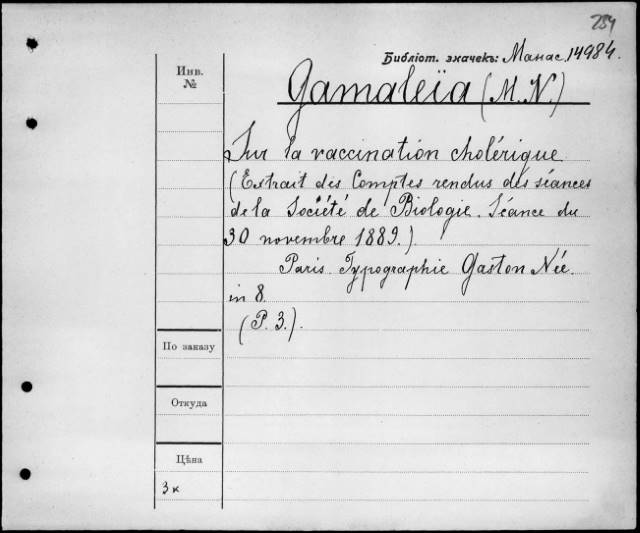 234
Библіот. значекъ: Манас. 14984.
Инв.
№
Gamaleïa (M. N.)
Sur la vaccination cholérique
(Extrait des Comptes rendus des séances
de la Société de Biologie. Séance du
30 novembre 1889.)
Paris. Typographie Gaston Née.
in 8.
(P. 3.).
По заказу
Откуда
Цѣна
3 к